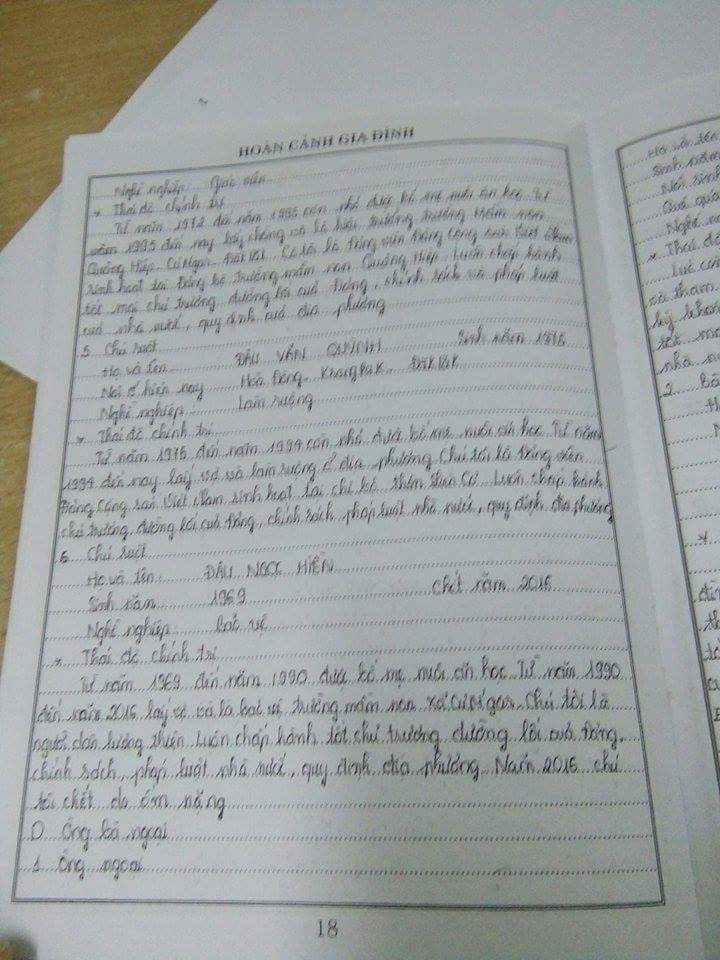 HOÀN CẢNH GIA ĐÌNH
Nghề nghiệp: Giáo viên
* Thái độ chính trị
Từ năm 1972 đến năm 1995 còn nhỏ được bố mẹ nuôi ăn học. Từ
năm 1995 đến nay lấy chồng và là hiệu trưởng trường mầm non
Quảng Hiệp. CưMgar. Đăk Lăk. Cô tôi là Đảng viên Đảng cộng sản Việt Nam
sinh hoạt tại Đảng bộ trường mầm non Quảng Hiệp. Luôn chấp hành
tốt mọi chủ trương, đường lối của Đảng, chính sách và pháp luật
của nhà nước, quy định của địa phương
5. Chú ruột
Họ và tên: ĐẬU VĂN QUỲNH Sinh năm 1976
Nơi ở hiện nay Hoà Đông. KrôngPăk. ĐăkLăk
Nghề nghiệp: Làm ruộng
* Thái độ chính trị
Từ năm 1976 đến năm 1994 còn nhỏ được bố mẹ nuôi ăn học. Từ năm
1994 đến nay lấy vợ và làm ruộng ở địa phương. Chú tôi là Đảng viên
Đảng Cộng sản Việt Nam sinh hoạt tại chi bộ thôn. Luôn chấp hành
chủ trương, đường lối của Đảng, chính sách pháp luật nhà nước, quy định địa phương
6. Chú ruột
Họ và tên: ĐẬU NGỌC HIỀN
Sinh năm 1969 Chết năm 2016
Nghề nghiệp: Bảo vệ
* Thái độ chính trị
Từ năm 1969 đến năm 1990 được bố mẹ nuôi ăn học. Từ năm 1990
đến năm 2016 lấy vợ và là bảo vệ trường mầm non xã CưMgar. Chú tôi là
người dân lương thiện. Luôn chấp hành tốt chủ trương, đường lối của Đảng,
chính sách, pháp luật nhà nước, quy định địa phương. Năm 2016 chú
tôi chết do ốm nặng
D. Ông bà ngoại
1. Ông ngoại
18
Họ và tên
Sinh năm
Nơi sinh
Quê quán
Nghề n
* Thái độ
lúc còn
và tham
kỳ khó
tốt mọ
nhà n
2. Bà